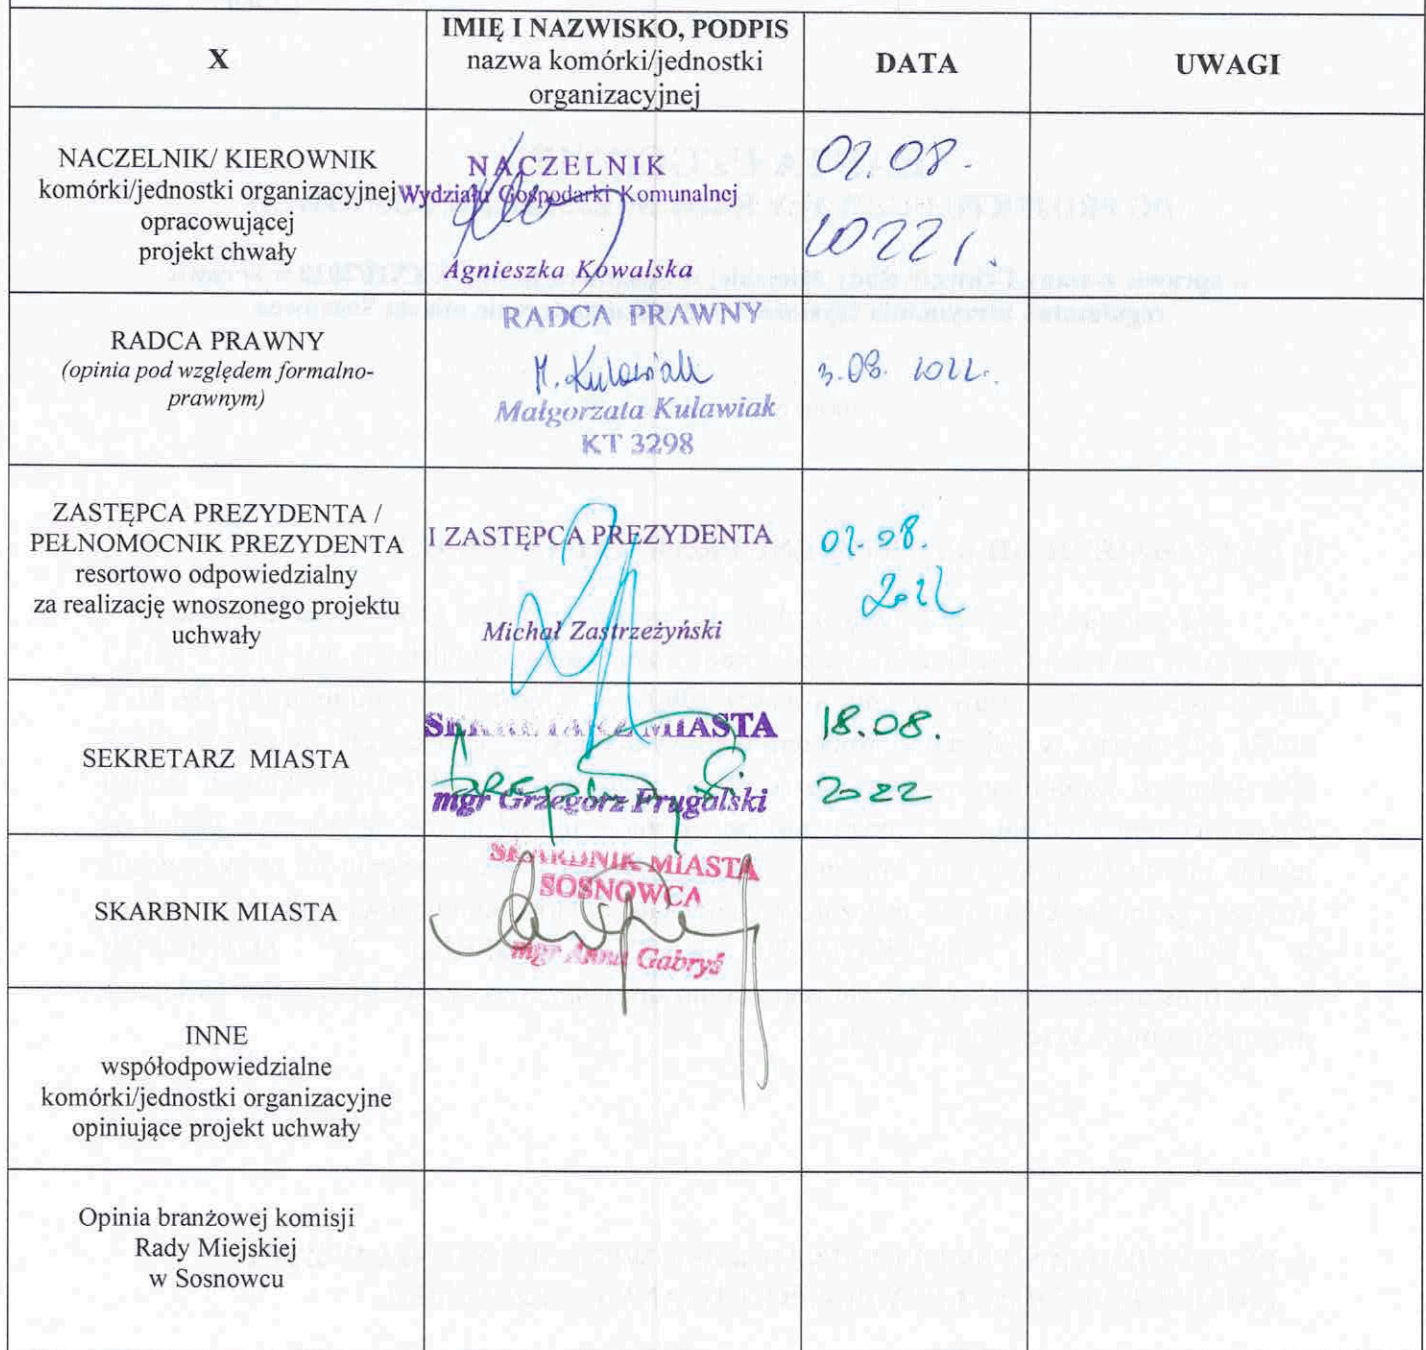 X
IMIĘ I NAZWISKO, PODPIS
nazwa komórki/jednostki
organizacyjnej
DATA
UWAGI
NACZELNIK/ KIEROWNIK
komórki/jednostki organizacyjnej
opracowującej
projekt chwały
NACZELNIK
Wydziału Gospodarki Komunalnej
Agnieszka Kowalska
02.08.
2022 r.
RADCA PRAWNY
(opinia pod względem formalno-
prawnym)
RADCA PRAWNY
M. Kulawiak
Małgorzata Kulawiak
KT 3298
3.08. 2022.
ZASTĘPCA PREZYDENTA /
PEŁNOMOCNIK PREZYDENTA
resortowo odpowiedzialny
za realizację wnoszonego projektu
uchwały
I ZASTĘPCA PREZYDENTA
Michał Zastrzeżyński
02.08.
2022
SEKRETARZ MIASTA
SEKRETARZ MIASTA
mgr Grzegorz Frugalski
18.08.
2022
SKARBNIK MIASTA
SKARBNIK MIASTA
SOSNOWCA
mgr Anna Gabryś
INNE
współodpowiedzialne
komórki/jednostki organizacyjne
opiniujące projekt uchwały
Opinia branżowej komisji
Rady Miejskiej
w Sosnowcu